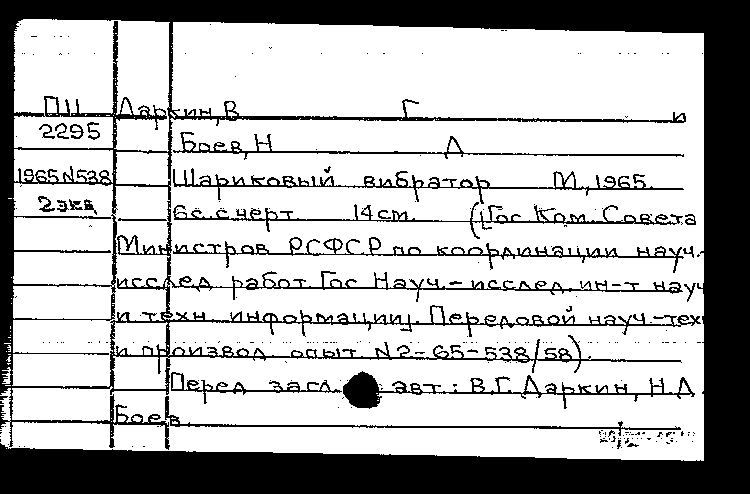 П11 Даркин, В Г и
2295 Боев, Н Д
1965 N538 Шариковый вибратор М., 1965.
2 экз 6 с. с черт. 14 см. ([Гос Ком. Совета
Министров РСФСР по координации науч.-
исслед работ Гос Науч.-исслед. ин-т науч
и техн. информации]. Передовой науч.-тех
и производ опыт N2-65-538/58).
Перед загл. авт.: В.Г. Даркин, Н.Д.
Боев.